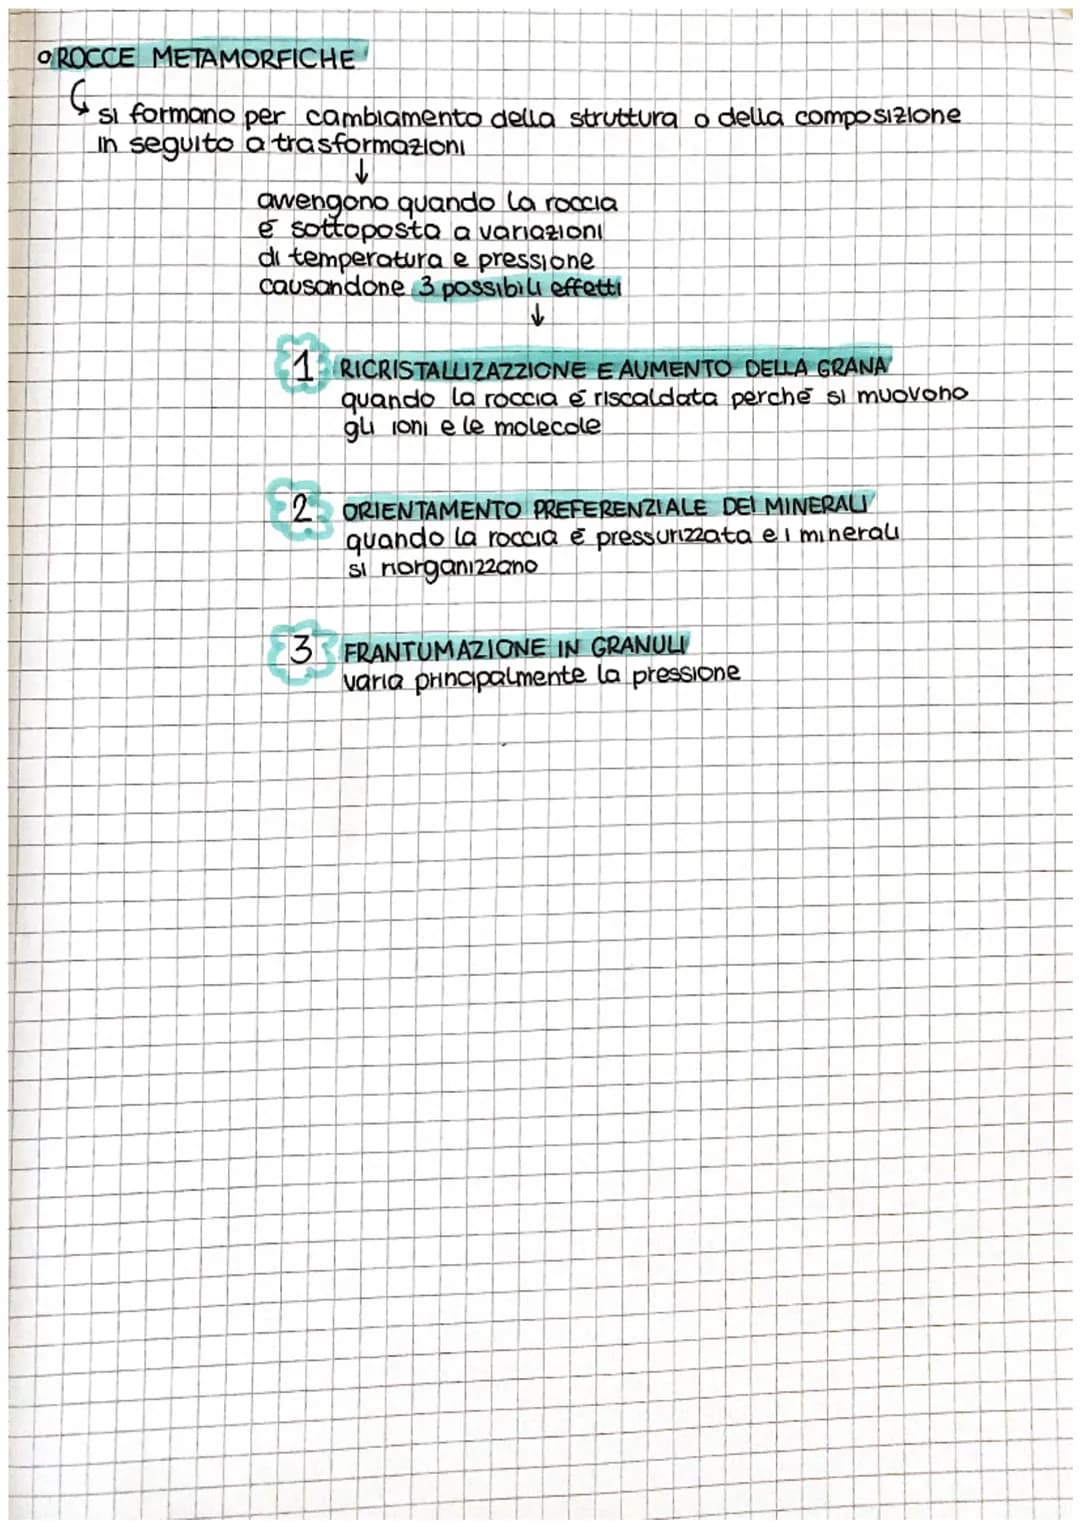 ROCCE METAMORFICHE
si formano per cambiamento della struttura o della composizione
in seguito a trasformazioni
avvengono quando la roccia
è sottoposta a variazioni
di temperatura e pressione
causandone 3 possibili effetti
1 RICRISTALLIZAZZIONE E AUMENTO DELLA GRANA
quando la roccia è riscaldata perché si muovono
gli ioni e le molecole
2 ORIENTAMENTO PREFERENZIALE DEI MINERALI
quando la roccia è pressurizzata e i minerali
si riorganizzano
3 FRANTUMAZIONE IN GRANULI
varia principalmente la pressione